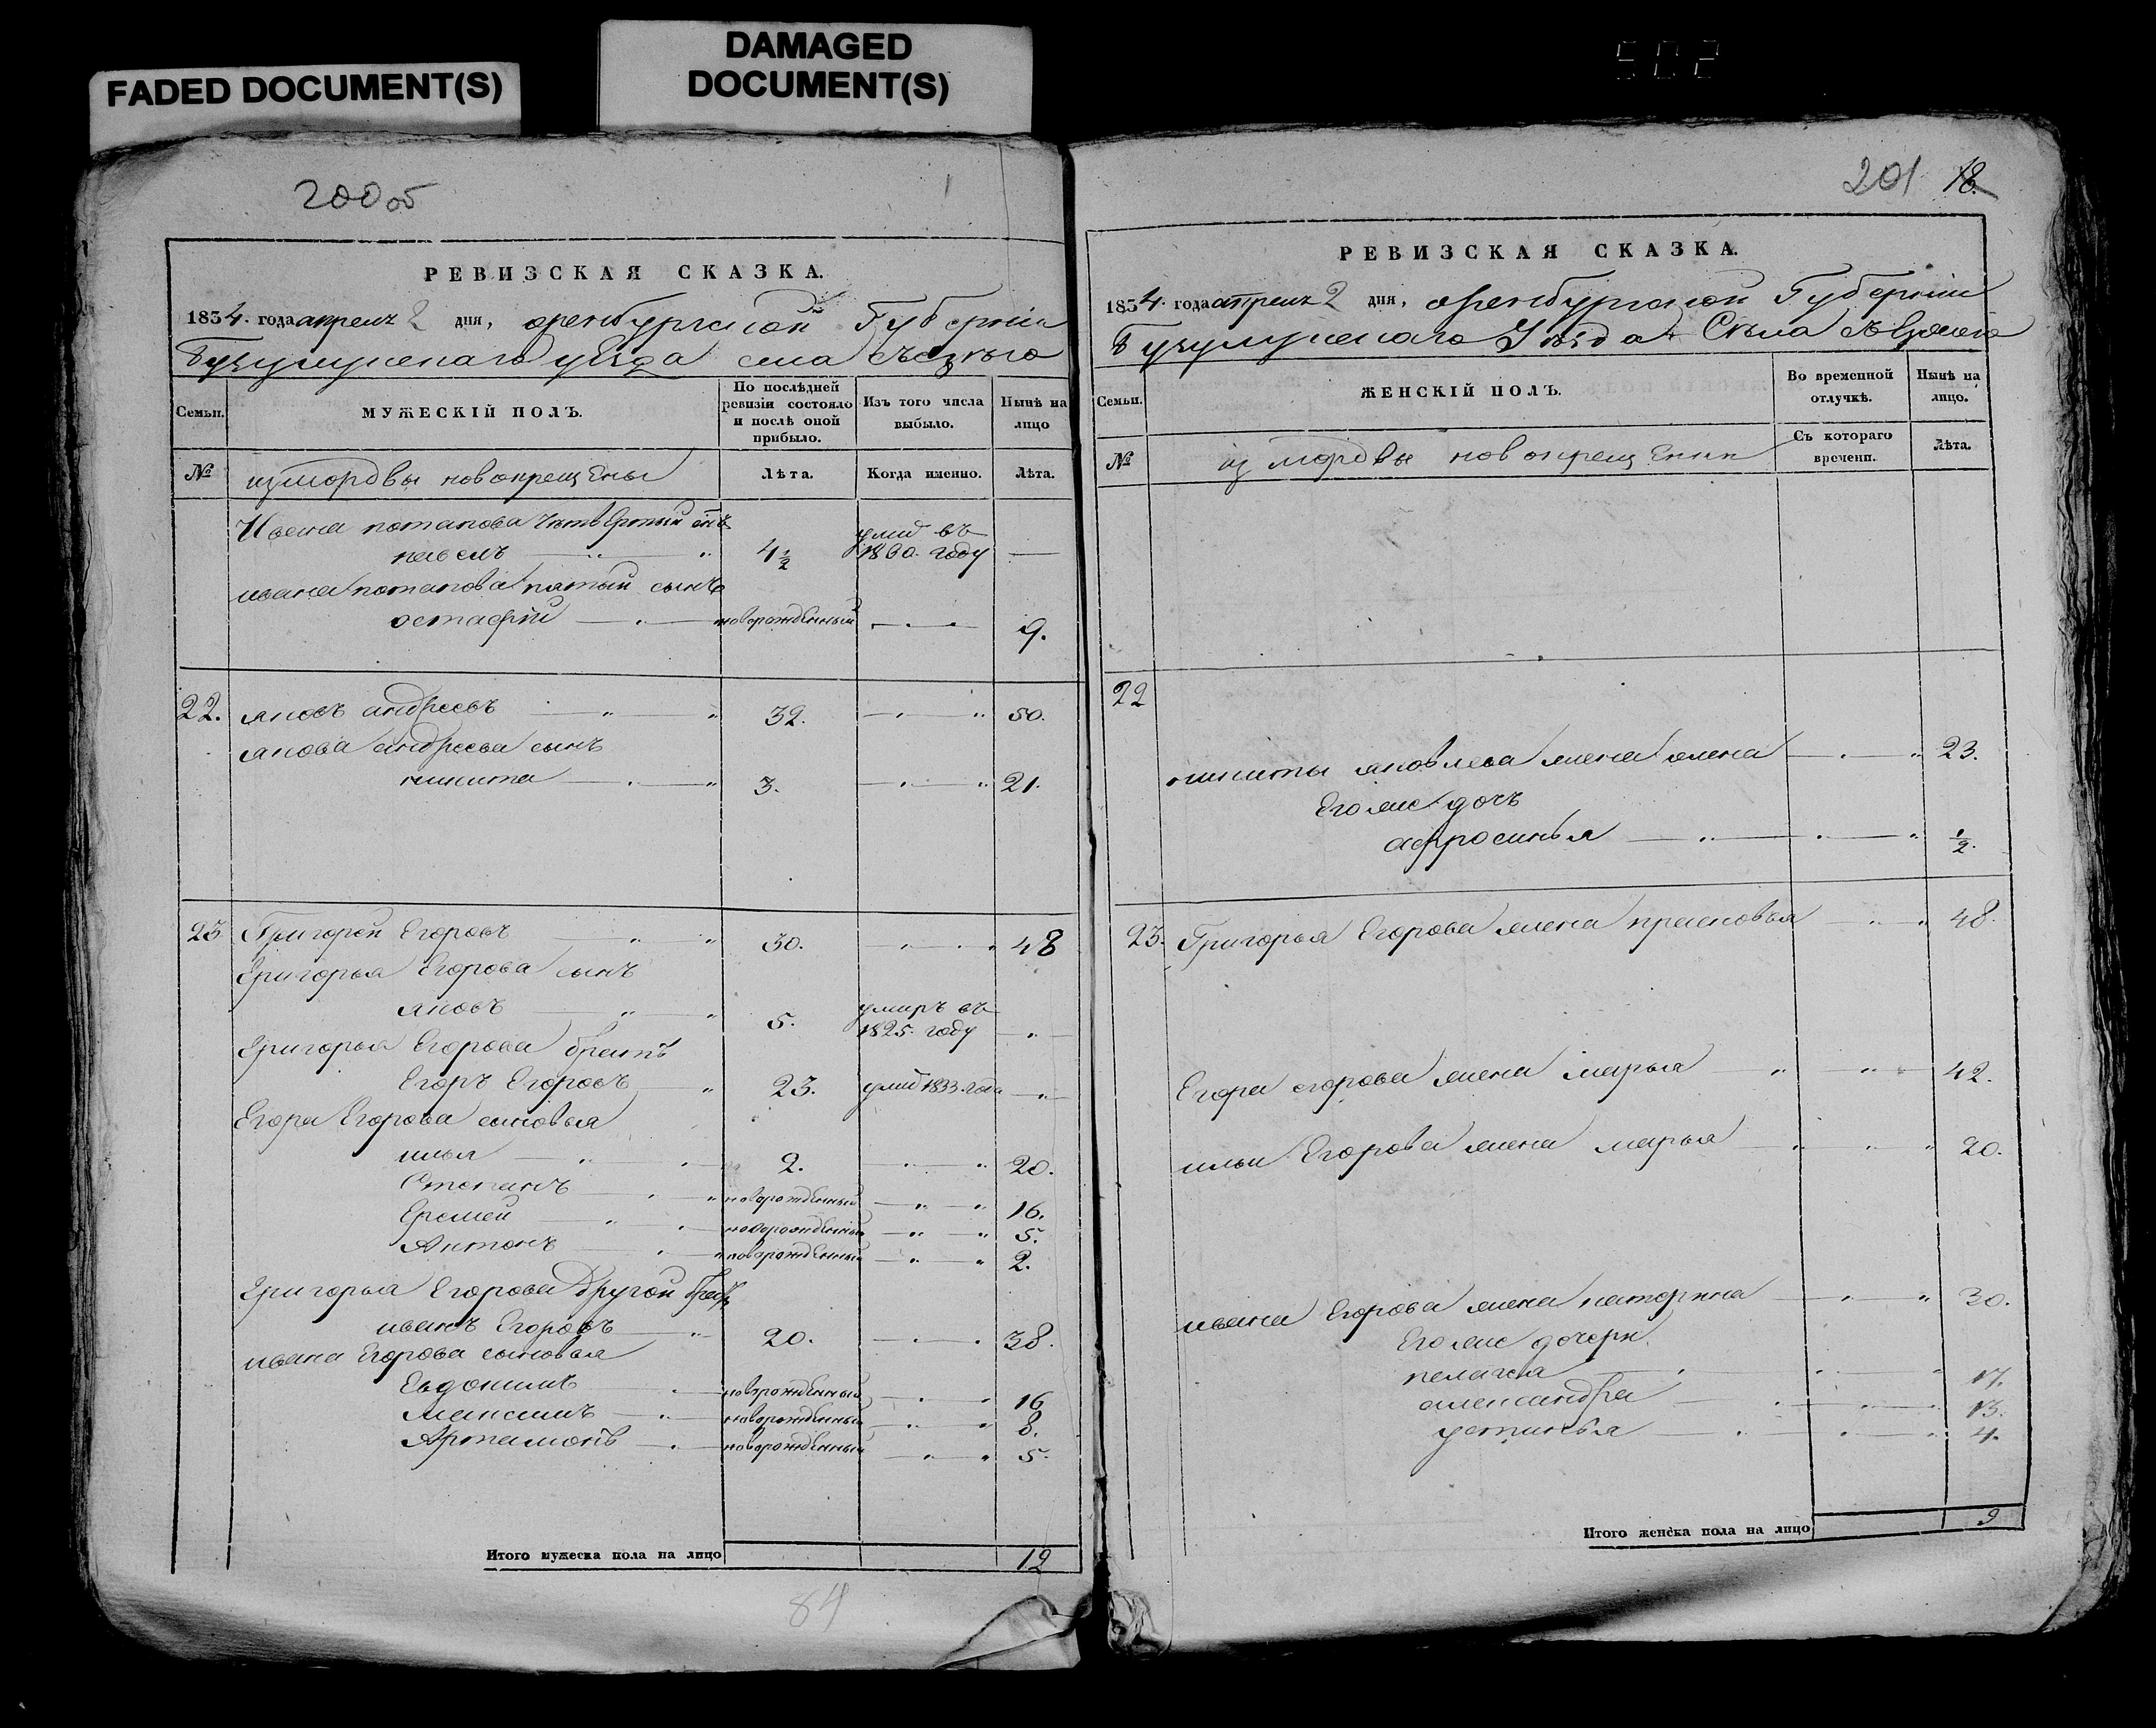 FADED DOCUMENT(S)
DAMAGED
DOCUMENT(S)
502
200 об
РЕВИЗСКАЯ СКАЗКА.
1834. года апреля 2 дня, оренбургской Губерніи
Бузулуцкаго уезда села съезжего
Семьи.
МУЖЕСКІЙ ПОЛЪ.
По послѣдней ревизіи состояло и послѣ оной прибыло.
Изъ того числа выбыло.
Нынѣ на лицо
№
из мордвы новокрещены
Лѣта.
Когда именно.
Лѣта.
Ивана потапова четвертый сынъ
павелъ 4 1/2 умер въ 18 0. году
ивана потапова пятый сынъ
остафий новорожденный 9.
22. яковъ андреевъ 32. 50.
якова андреева сынъ
никита 3. 21.
23 Григорей Егоровъ 30. 48
Григорья Егорова сынъ
яковъ 5. умиръ въ 1825. году
Григорья Егорова братъ
Егоръ Егоровъ 23. умир 1833. года
Егора Егорова сыновья
илья 2. 20.
Степанъ новорожденный 16.
Еремей новорожденный 5.
Антонъ новорожденный 2.
Григорья Егорова Другой братъ
иванъ Егоровъ 20. 38.
ивана Егорова сыновья
Евдокимъ новорожденный 16
Максимъ новорожденный 8.
Артамонъ новорожденный 5.
Итого мужеска пола на лицо 12
84
201 18.
РЕВИЗСКАЯ СКАЗКА.
1834. года апреля 2 дня, оренбургской Губерніи
Бузулуцкаго Уезда Села съезжего
Семьи.
ЖЕНСКІЙ ПОЛЪ.
Во временной отлучкѣ.
Нынѣ на лицо.
№
из мордвы новокрещены
Съ котораго времени.
Лѣта.
22
никиты яковлева жена елена 23.
Его же дочь
афросинья 1/2.
23. Григорья Егорова жена прасковья 48.
Егора егорова жена марья 42.
ильи Егорова жена марья 20.
ивана Егорова жена катерина 30.
Его же дочери
пелагея 17.
александра 13.
устинья 4.
Итого женска пола на лицо 9